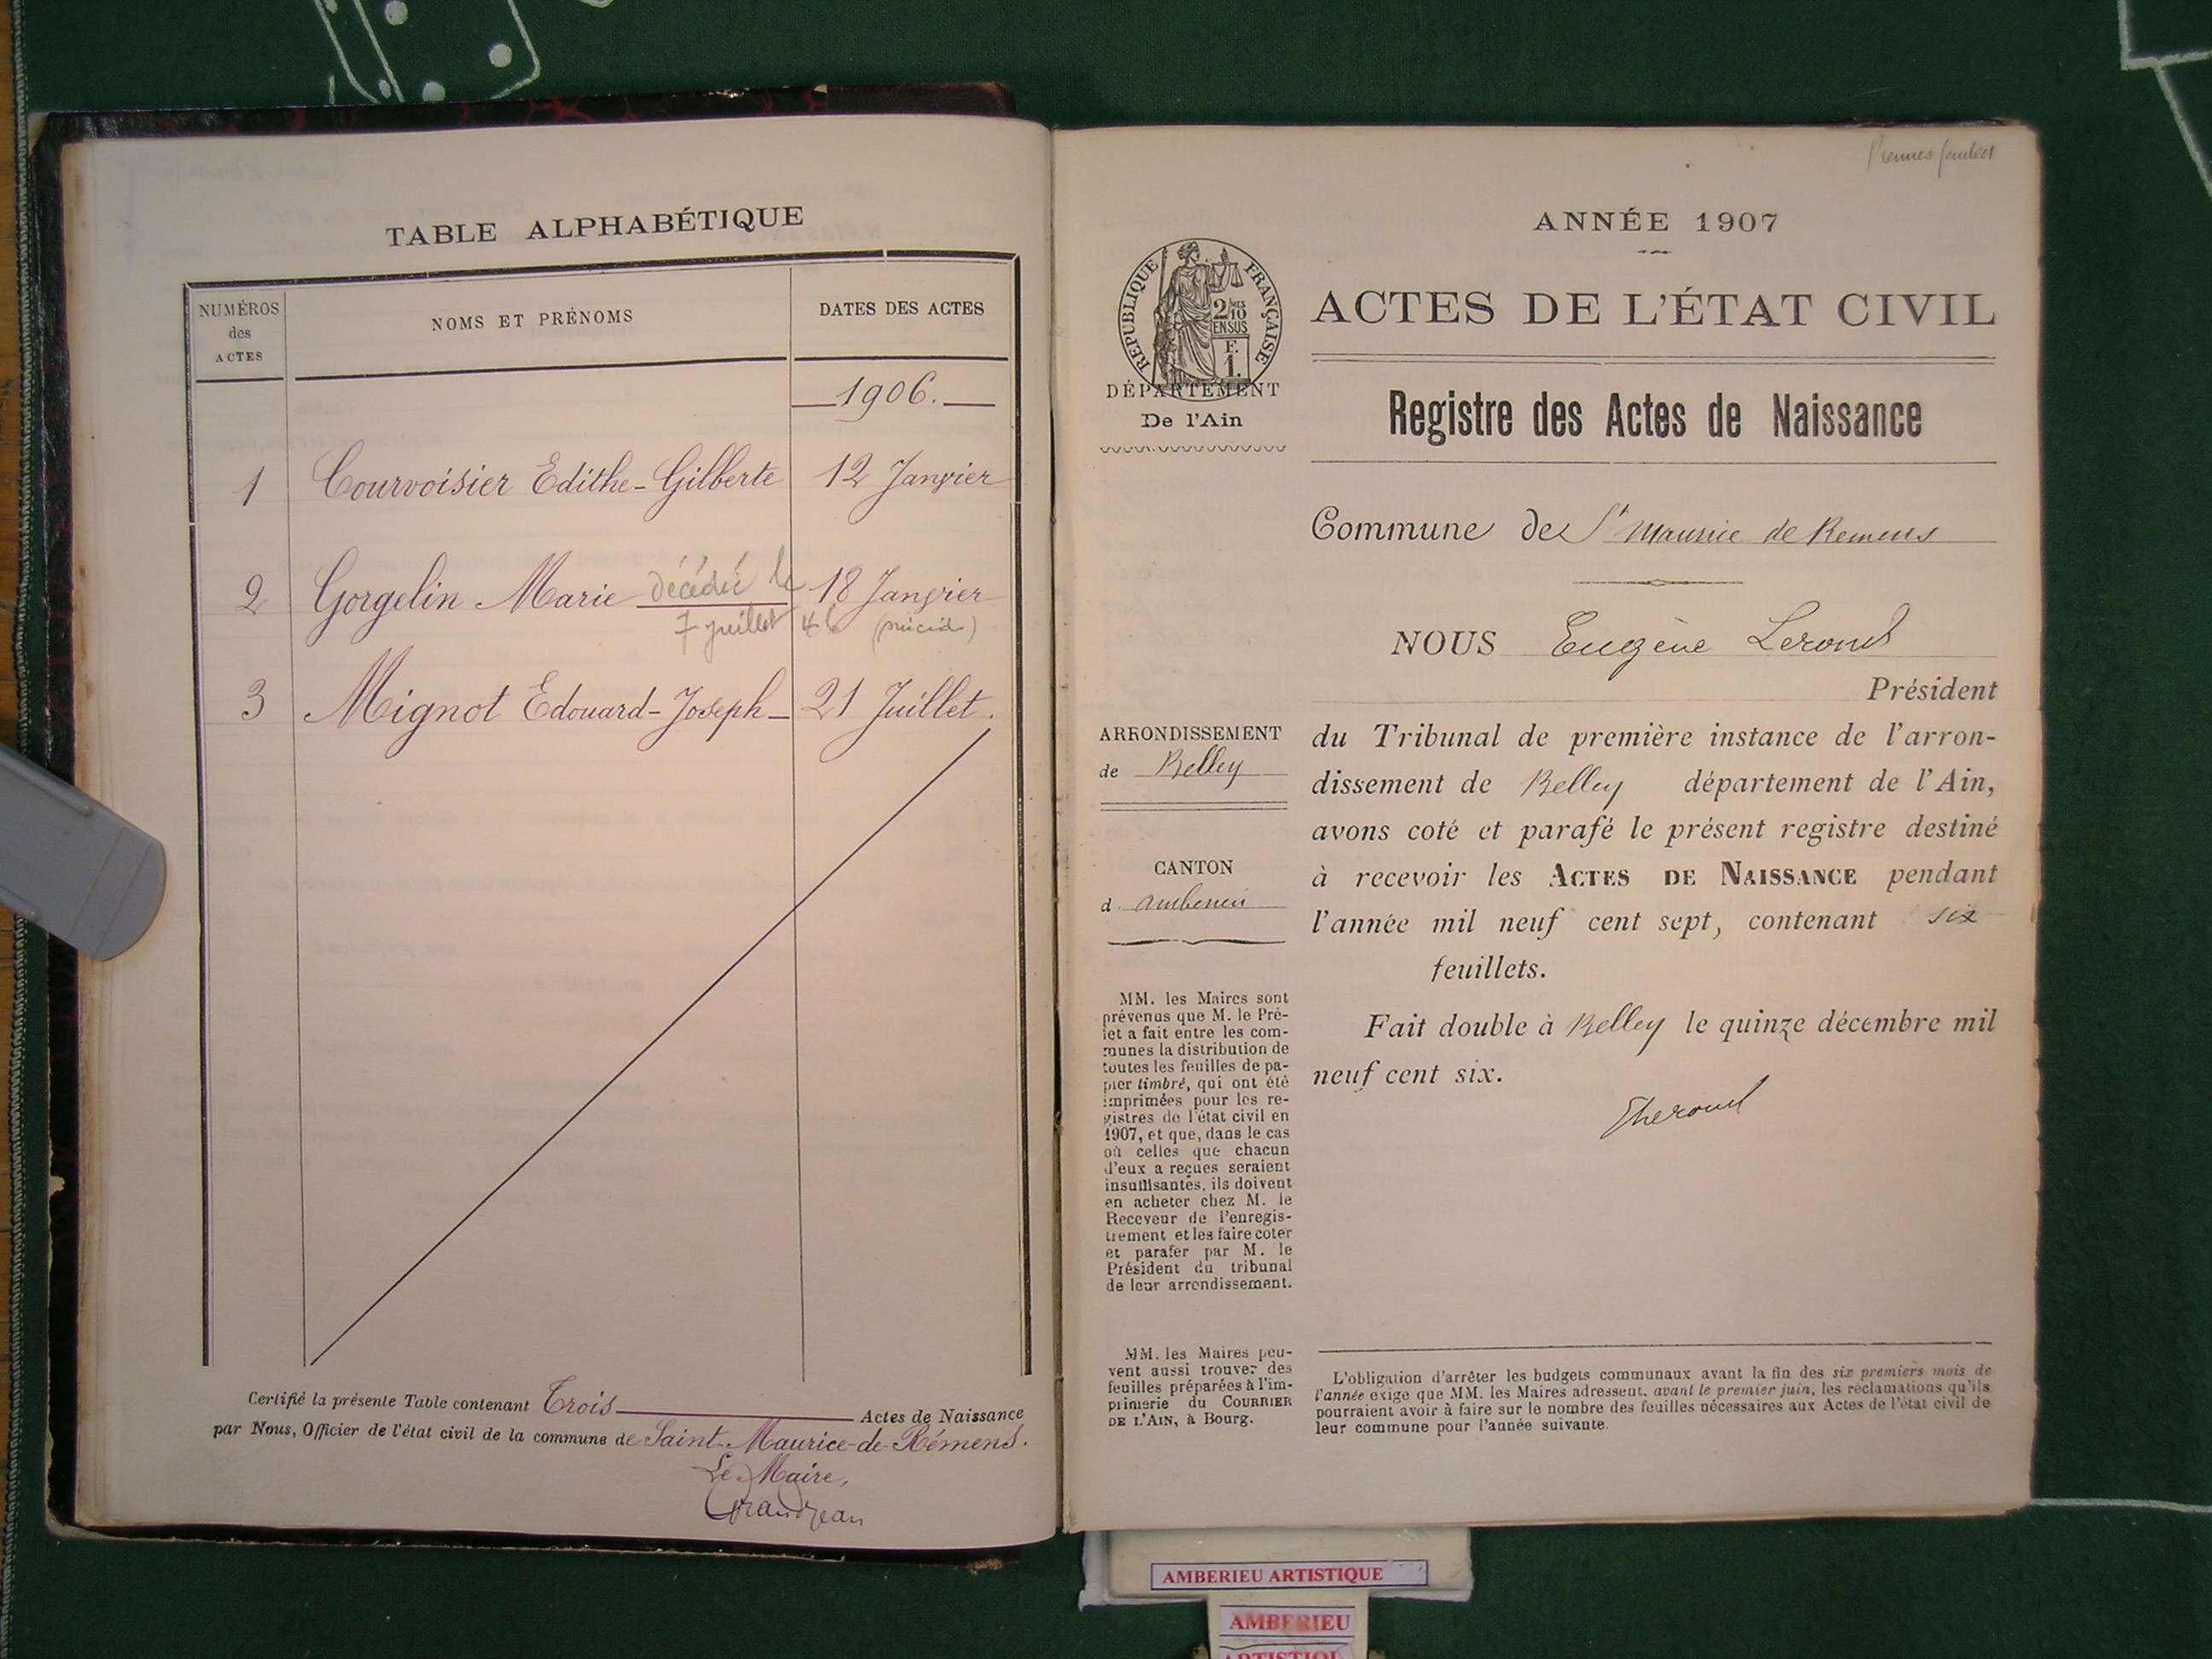 TABLE ALPHABÉTIQUE
NUMÉROS
des
ACTES
NOMS ET PRÉNOMS
DATES DES ACTES
1906.
1 Courvoisier Edithe-Gilberte 12 Janvier
2 Gorgelin Marie décédée le 18 Janvier
7 juillet 46 (suicide)
3 Mignot Edouard-Joseph 21 Juillet.
Certifié la présente Table contenant Trois Actes de Naissance
par Nous, Officier de l'état civil de la commune de Saint-Maurice-de-Rémens.
Le Maire,
Grandjean
ANNÉE 1907
RÉPUBLIQUE FRANÇAISE
2 MES
10
EN SUS
F.
1.
DÉPARTEMENT
De l'Ain
ACTES DE L'ÉTAT CIVIL
Registre des Actes de Naissance
Commune de St Maurice de Remens
NOUS Eugène Lerond
Président
ARRONDISSEMENT
de Belley
CANTON
d
MM. les Maires sont
prévenus que M. le Pré-
fet a fait entre les com-
munes la distribution de
toutes les feuilles de pa-
pier timbré, qui ont été
imprimées pour les re-
gistres de l'état civil en
1907, et que, dans le cas
où celles que chacun
d'eux a reçues seraient
insuffisantes, ils doivent
en acheter chez M. le
Receveur de l'enregis-
trement et les faire coter
et parafer par M. le
Président du tribunal
de leur arrondissement.
MM. les Maires peu-
vent aussi trouver des
feuilles préparées à l'im-
primerie du COURRIER
DE L'AIN, à Bourg.
du Tribunal de première instance de l'arron-
dissement de Belley département de l'Ain,
avons coté et parafé le présent registre destiné
à recevoir les ACTES DE NAISSANCE pendant
l'année mil neuf cent sept, contenant six
feuillets.
Fait double à Belley le quinze décembre mil
neuf cent six.
L'obligation d'arrêter les budgets communaux avant la fin des six premiers mois de
l'année exige que MM. les Maires adressent, avant le premier juin, les réclamations qu'ils
pourraient avoir à faire sur le nombre des feuilles nécessaires aux Actes de l'état civil de
leur commune pour l'année suivante.
AMBERIEU ARTISTIQUE
AMBERIEU